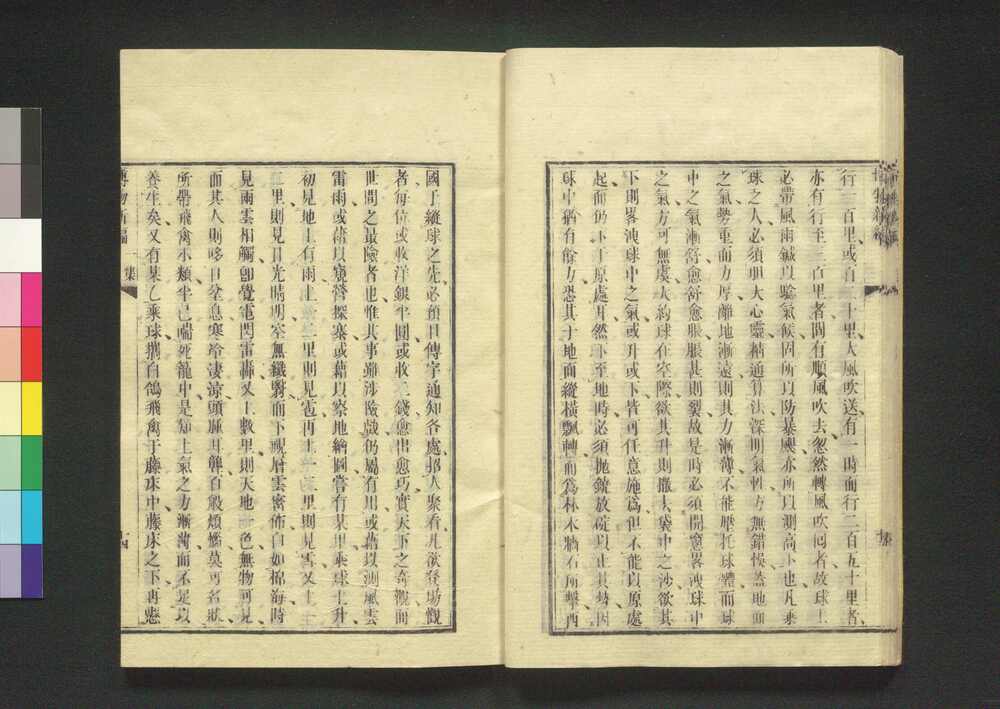 行三百里或百二十里大風吹送有一時而行二百五十里者
亦有行至三百里者間有順風吹去忽然轉風吹囘者故球上
必帶風雨鍼以驗氣候固所以防暴颶亦所以測高下也凡乘
球之人必須胆大心靈精通算法深明氣性方無錯悞蓋地面
之氣勢重而力厚離地漸遠則其力漸薄不能壓托球體而球
中之氣漸舒愈舒愈脹脹甚則裂故是時必須開竅畧洩球中
之氣方可無虞大約球在空際欲其升則撒去袋中之沙欲其
下則畧洩球中之氣或升或下皆可任意施爲但不能以原處
起而仍下于原處耳然下至地時必須拋錨放碇以止其勢因
球中猶有餘力恐其于地面縱橫飄轉而爲林木牆石所擊西
國于縱球之先必預日傳字通知各處招人聚看凡欲登場觀
者每位或收洋銀半圓或收錢愈出愈巧實天下之奇觀而
世間之最險者也惟其事雖涉險戲仍屬有用或藉以測風雲
雷雨或藉以窺營探寨或藉以察地繪圖嘗有某甲乘球上升
初見地上有雨上里則見雹再上里則見雪又上
里則見日光晴明空無纖翳而下視層雲密佈白如棉海時
見兩雲相觸卽覺電閃雷轟又上數里則天地一色無物可見
而其人則哆口呑息寒冷凄涼頭腫耳聾百般煩懣莫可名狀
所帶飛禽小類半已喘死籠中是知上氣之力漸薄而不足以
養生矣又有某乙乘球携白鴿飛禽于藤床中藤床之下再懸
博物新編
一集
十四